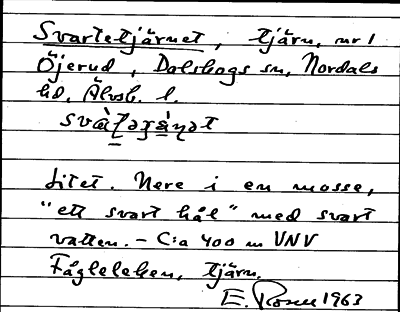 Svartetjärnet, tjärn, nr 1
Öjerud, Dalskogs sn, Nordals
hd, Älvsb. l.
svàʈəʒæ̀ṇət
Litet. Nere i en mosse,
"ett svart hål" med svart
vatten. – C:a 400 m VNV
Fågleleken, tjärn.
E. Rosen 1963